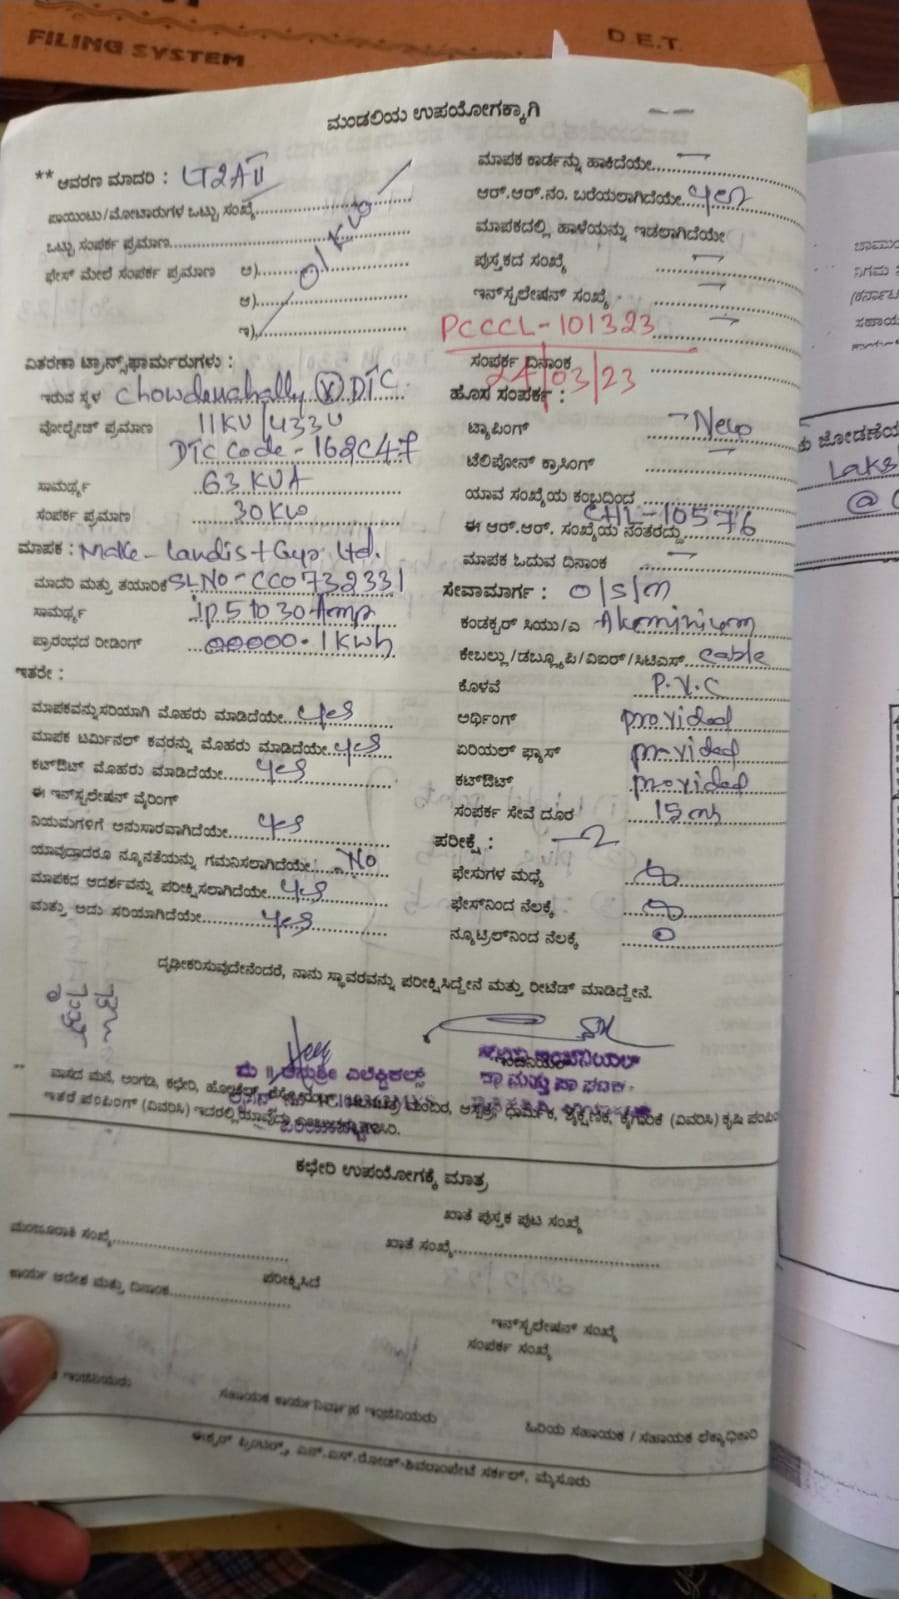 FILING SYSTEM
D.E.T.
ಮಂಡಲಿಯ ಉಪಯೋಗಕ್ಕಾಗಿ
** ಆವರಣ ಮಾದರಿ : LT2AII
ಪಾಯಿಂಟು/ಮೋಟಾರುಗಳ ಒಟ್ಟು ಸಂಖ್ಯೆ
ಒಟ್ಟು ಸಂಪರ್ಕ ಪ್ರಮಾಣ
ಫೇಸ್ ಮೇಲೆ ಸಂಪರ್ಕ ಪ್ರಮಾಣ ಅ)
ಆ)
ಇ)
01KW
ವಿತರಣಾ ಟ್ರಾನ್ಸ್‌ಫಾರ್ಮರುಗಳು :
ಇರುವ ಸ್ಥಳ Chowdenahally (X) DTC
ವೋಲ್ಟೇಜ್ ಪ್ರಮಾಣ 11KV/433V
DTC Code - 162C47
ಸಾಮರ್ಥ್ಯ 63 KVA
ಸಂಪರ್ಕ ಪ್ರಮಾಣ 30KW
ಮಾಪಕ : Make - Landis + Gyr Ltd.
ಮಾದರಿ ಮತ್ತು ತಯಾರಿಕೆ SLNO - CC0732331
ಸಾಮರ್ಥ್ಯ 1p 5 to 30 Amp
ಪ್ರಾರಂಭದ ರೀಡಿಂಗ್ 00000.1 KWh
ಇತರೇ :
ಮಾಪಕವನ್ನು ಸರಿಯಾಗಿ ಮೊಹರು ಮಾಡಿದೆಯೇ yes
ಮಾಪಕ ಟರ್ಮಿನಲ್ ಕವರನ್ನು ಮೊಹರು ಮಾಡಿದೆಯೇ yes
ಕಟ್‌ಔಟ್ ಮೊಹರು ಮಾಡಿದೆಯೇ yes
ಈ ಇನ್‌ಸ್ಟಲೇಷನ್ ವೈರಿಂಗ್
ನಿಯಮಗಳಿಗೆ ಅನುಸಾರವಾಗಿದೆಯೇ yes
ಯಾವುದಾದರೂ ನ್ಯೂನತೆಯನ್ನು ಗಮನಿಸಲಾಗಿದೆಯೇ No
ಮಾಪಕದ ಆದರ್ಶವನ್ನು ಪರೀಕ್ಷಿಸಲಾಗಿದೆಯೇ yes
ಮತ್ತು ಅದು ಸರಿಯಾಗಿದೆಯೇ yes
ಮಾಪಕ ಕಾರ್ಡನ್ನು ಹಾಕಿದೆಯೇ
ಆರ್.ಆರ್.ನಂ. ಬರೆಯಲಾಗಿದೆಯೇ yes
ಮಾಪಕದಲ್ಲಿ ಹಾಳೆಯನ್ನು ಇಡಲಾಗಿದೆಯೇ
ಪುಸ್ತಕದ ಸಂಖ್ಯೆ
ಇನ್‌ಸ್ಟಲೇಷನ್ ಸಂಖ್ಯೆ
PCCCL-101323
ಸಂಪರ್ಕ ದಿನಾಂಕ
24/03/23
ಹೊಸ ಸಂಪರ್ಕ :
ಟ್ಯಾಪಿಂಗ್ New
ಟೆಲಿಪೋನ್ ಕ್ರಾಸಿಂಗ್
ಯಾವ ಸಂಖ್ಯೆಯ ಕಂಬದಿಂದ
ಈ ಆರ್.ಆರ್. ಸಂಖ್ಯೆಯ ನಂತರದ್ದು CHL-10576
ಮಾಪಕ ಓದುವ ದಿನಾಂಕ
ಸೇವಾಮಾರ್ಗ : O/S/M
ಕಂಡಕ್ಟರ್ ಸಿಯು/ಎ Aluminium
ಕೇಬಲ್ಲು/ಡಬ್ಲ್ಯೂಪಿ/ವಿಐಆರ್/ಸಿಟಿಎಸ್ cable
ಕೊಳವೆ P.V.C
ಅರ್ಥಿಂಗ್ provided
ಏರಿಯಲ್ ಫ್ಯೂಸ್ provided
ಕಟ್‌ಔಟ್ provided
ಸಂಪರ್ಕ ಸೇವೆ ದೂರ 15m
ಪರೀಕ್ಷೆ :
ಫೇಸುಗಳ ಮಧ್ಯೆ
ಫೇಸ್‌ನಿಂದ ನೆಲಕ್ಕೆ
ನ್ಯೂಟ್ರಲ್‌ನಿಂದ ನೆಲಕ್ಕೆ
ದೃಢೀಕರಿಸುವುದೇನೆಂದರೆ, ನಾನು ಸ್ಥಾವರವನ್ನು ಪರೀಕ್ಷಿಸಿದ್ದೇನೆ ಮತ್ತು ರೀಟೆಡ್ ಮಾಡಿದ್ದೇನೆ.
ಮೆ|| ಅನುಶ್ರೀ ಎಲೆಕ್ಟ್ರಿಕಲ್ಸ್
** ವಾಸದ ಮನೆ, ಅಂಗಡಿ, ಕಛೇರಿ, ಮಂದಿರ, ಆಸ್ಪತ್ರೆ, ಧಾರ್ಮಿಕ, ಶೈಕ್ಷಣಿಕ, ಕೈಗಾರಿಕೆ (ವಿವರಿಸಿ) ಕೃಷಿ ಪಂಪಿಂಗ್
ಇತರೆ ಪಂಪಿಂಗ್ (ವಿವರಿಸಿ)
ಕಛೇರಿ ಉಪಯೋಗಕ್ಕೆ ಮಾತ್ರ
ಖಾತೆ ಪುಸ್ತಕ ಪುಟ ಸಂಖ್ಯೆ
ಮಂಜೂರಾತಿ ಸಂಖ್ಯೆ
ಖಾತೆ ಸಂಖ್ಯೆ
ಕಾರ್ಯ ಆದೇಶ ಮತ್ತು ದಿನಾಂಕ
ಪರೀಕ್ಷಿಸಿದೆ
ಇನ್‌ಸ್ಟಲೇಷನ್ ಸಂಖ್ಯೆ
ಸಂಪರ್ಕ ಸಂಖ್ಯೆ
ಇಂಜಿನಿಯರು
ಸಹಾಯಕ ಕಾರ್ಯನಿರ್ವಾಹಕ ಇಂಜಿನಿಯರು
ಹಿರಿಯ ಸಹಾಯಕ / ಸಹಾಯಕ ಲೆಕ್ಕಾಧಿಕಾರಿ
ಈಶ್ವರ್ ಪ್ರಿಂಟರ್ಸ್, ಎನ್.ಎಸ್.ರೋಡ್-ಶಿವರಾಂಪೇಟೆ ಸರ್ಕಲ್, ಮೈಸೂರು